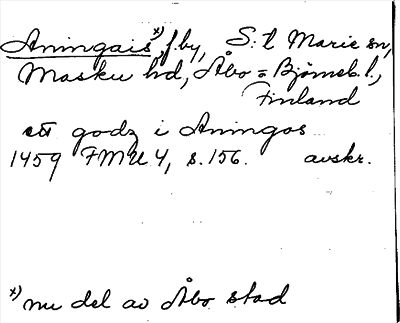 Aningais*), f. by, S:t Marie sn,
Masku hd, Åbo = Björneb. l.,
Finland
ett godz i Aningos
1459 FMU 4, s. 156. avskr.
*) nu del av Åbo stad